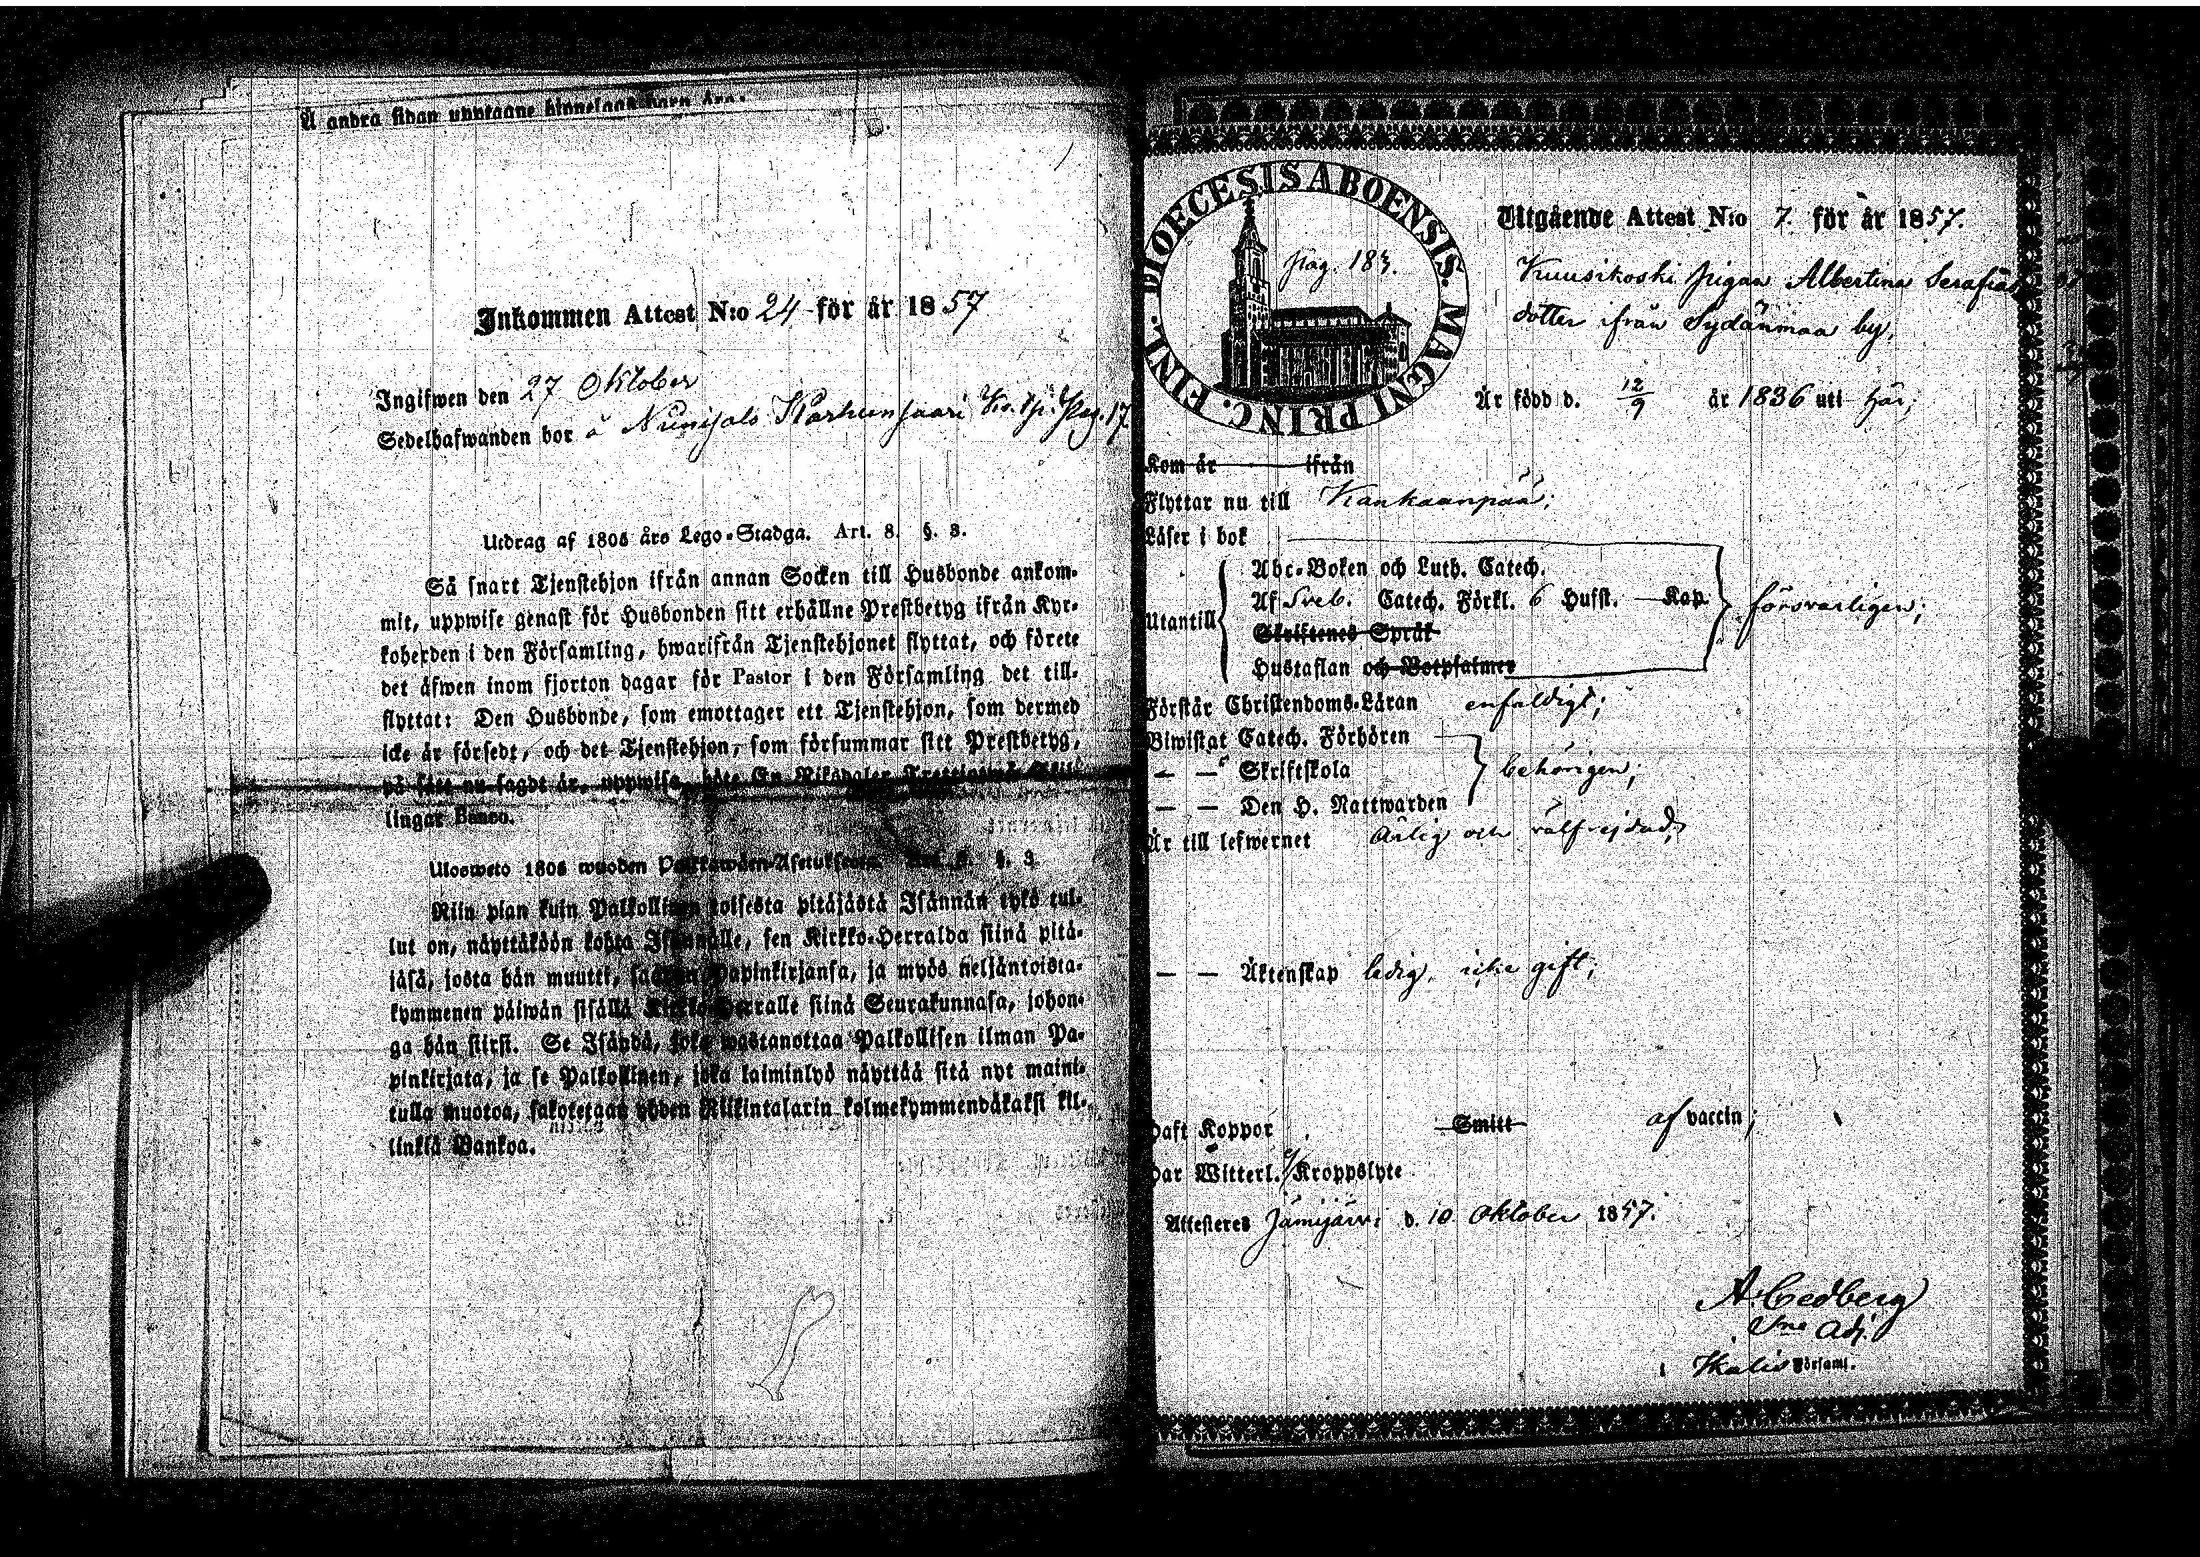 Å andra sidan
Inkommen Attest N:o 24 för år 1857
Ingifwen den 27 Oktober
Sedelhafwanden bor å Karhunsaari
Utdrag af 1805 års Lego-Stadga. Art. 8. §. 3.
Så snart Tjenstehjon ifrån annan Socken till Husbonde ankom-
mit, uppwise genast för Husbonden sitt erhållne Prestbetyg ifrån Kyr-
koherden i den Församling, hwarifrån Tjenstehjonet flyttat, och förete
det äfwen inom fjorton dagar för Pastor i den Församling det till-
flyttat: Den Husbonde, som emottager ett Tjenstehjon, som dermed
icke är försedt, och det Tjenstehjon, som försummar sitt Prestbetyg,
på sätt nu sagdt är, uppwisa, böte En Riksdaler Trettiotwå Skil-
lingar Banco.
Ulosweto 1805 wuoden Palkkawäen-Asetuksesta. §. 3
Niin pian kuin Palkollinen toisesta pitäjästä Isännän tykö tul-
lut on, näyttäköön kohta Isännälle, sen Kirkko-Herralda siinä pitä-
jäsä, josta hän muutti, saadun Papinkirjansa, ja myös neljäntoista-
kymmenen päiwän sisällä Kirkko-Herralle siinä Seurakunnasa, johon-
ga hän siirsi. Se Isändä, joka wastanottaa Palkollisen ilman Pa-
pinkirjata, ja se Palkollinen, joka laiminlyö näyttää sitä nyt maini-
tulla muotoa, sakotetaan yhden Riikintalarin kolmekymmendäkaksi kil-
linkiä Bankoa.
DIOECESIS ABOENSIS. MAGNI PRINC. FINL.
pag. 183.
Utgående Attest N:o 7. för år 1857.
Kuusikoski pigan Albertina Serafia
dotter ifrån Sydänmaa by,
Är född d. 12/9 år 1836 uti här;
Kom år ifrån
Flyttar nu till Kankaanpää;
Läser i bok
Utantill
Abc-Boken och Luth. Catech.
Af Sveb. Catech. Förkl. 6 Hufst. Kap.
Skriftenes Språk
Hustaflan och Botpsalmer
försvarligen;
Förstår Christendoms-Läran enfaldigt;
Biwistat Catech. Förhören
— — Skriftskola behörigen;
— — Den H. Nattwarden
Är till lefwernet Ärlig och välfrejdad;
— — Äktenskap ledig, icke gift;
Haft Koppor Smitt af vaccin;
Har Witterl. Kroppslyte
Attesteras Jämijärvi d. 10 Oktober 1857.
A. Cedberg
Adj.
Ikalis Församl.